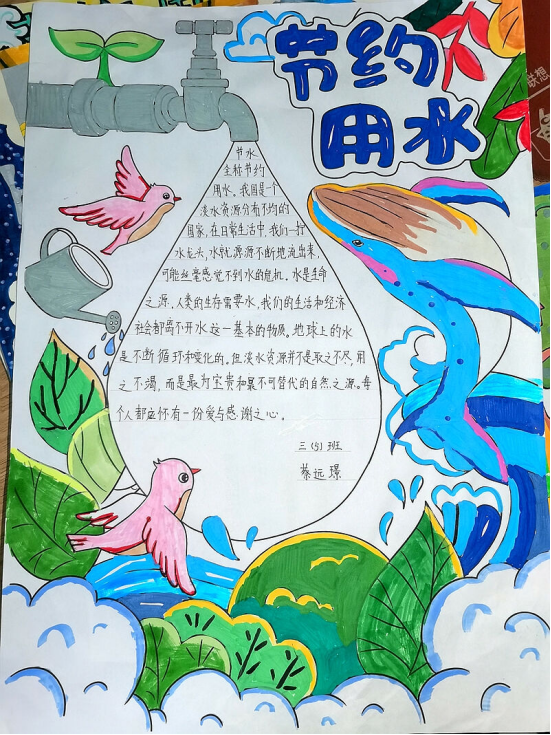 节约
用水
节水
主标节约
用水。我国是一个
淡水资源分布不均的
国家，在日常生活中，我们一拧
水龙头，水就源源不断地流出来，
可能丝毫感觉不到水的危机。水是生命
之源，人类的生存需要水，我们的生活和经济
社会都离不开水这一基本的物质。地球上的水
是不断循环和变化的。但淡水资源并不是取之不尽，用
之不竭，而是最为宝贵和最不可替代的自然之源。每
个人都应怀有一份爱与感谢之心。
三（5）班
蔡远璟
联想